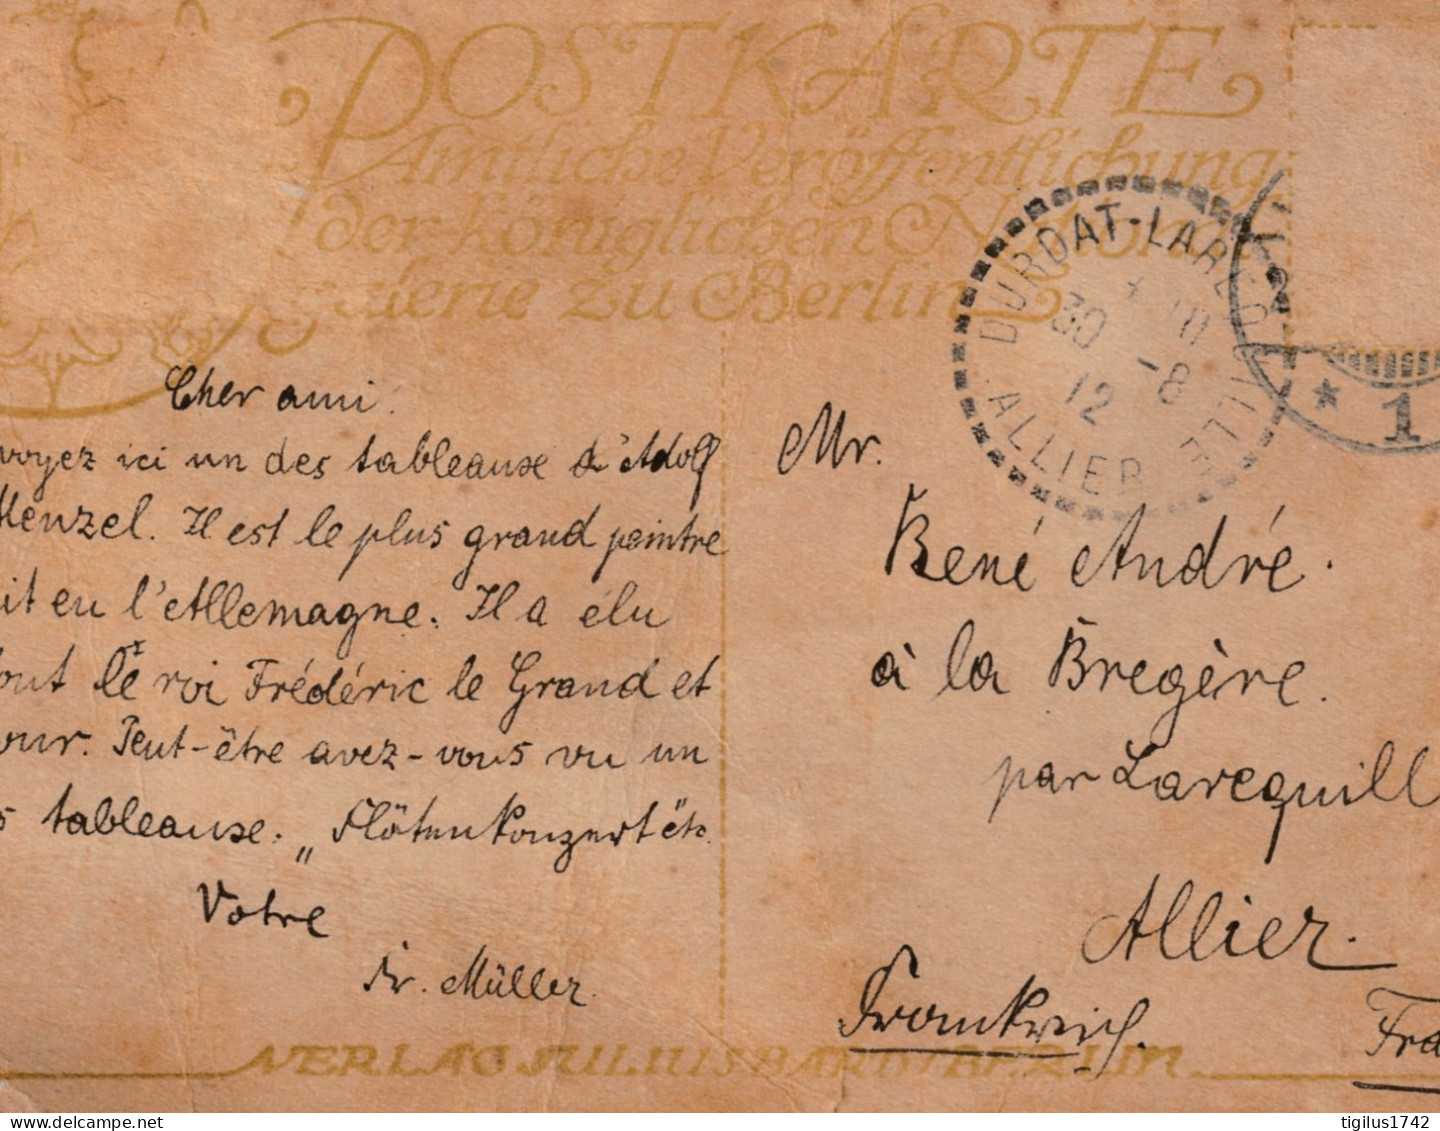 POSTKARTE
Amtliche Veröffentlichung
der königlichen National
galerie zu Berlin
DURDAT-LAREQUILLE
30 -8
12
ALLIER
* 1
Cher ami.
voyez ici un des tableause d'Adolf
Menzel. Il est le plus grand peintre
it en l'Allemagne. Il a élu
out le roi Frédéric le Grand et
our. Peut-être avez-vous vu un
s tableause. „Flötenkonzert etc.
Votre
Fr. Müller.
Mr.
René André.
à la Bregère.
par Larequill
Allier.
Frankreich.
Fra
VERLAG JULIUS BARD BERLIN
delcampe.net
tigilus1742